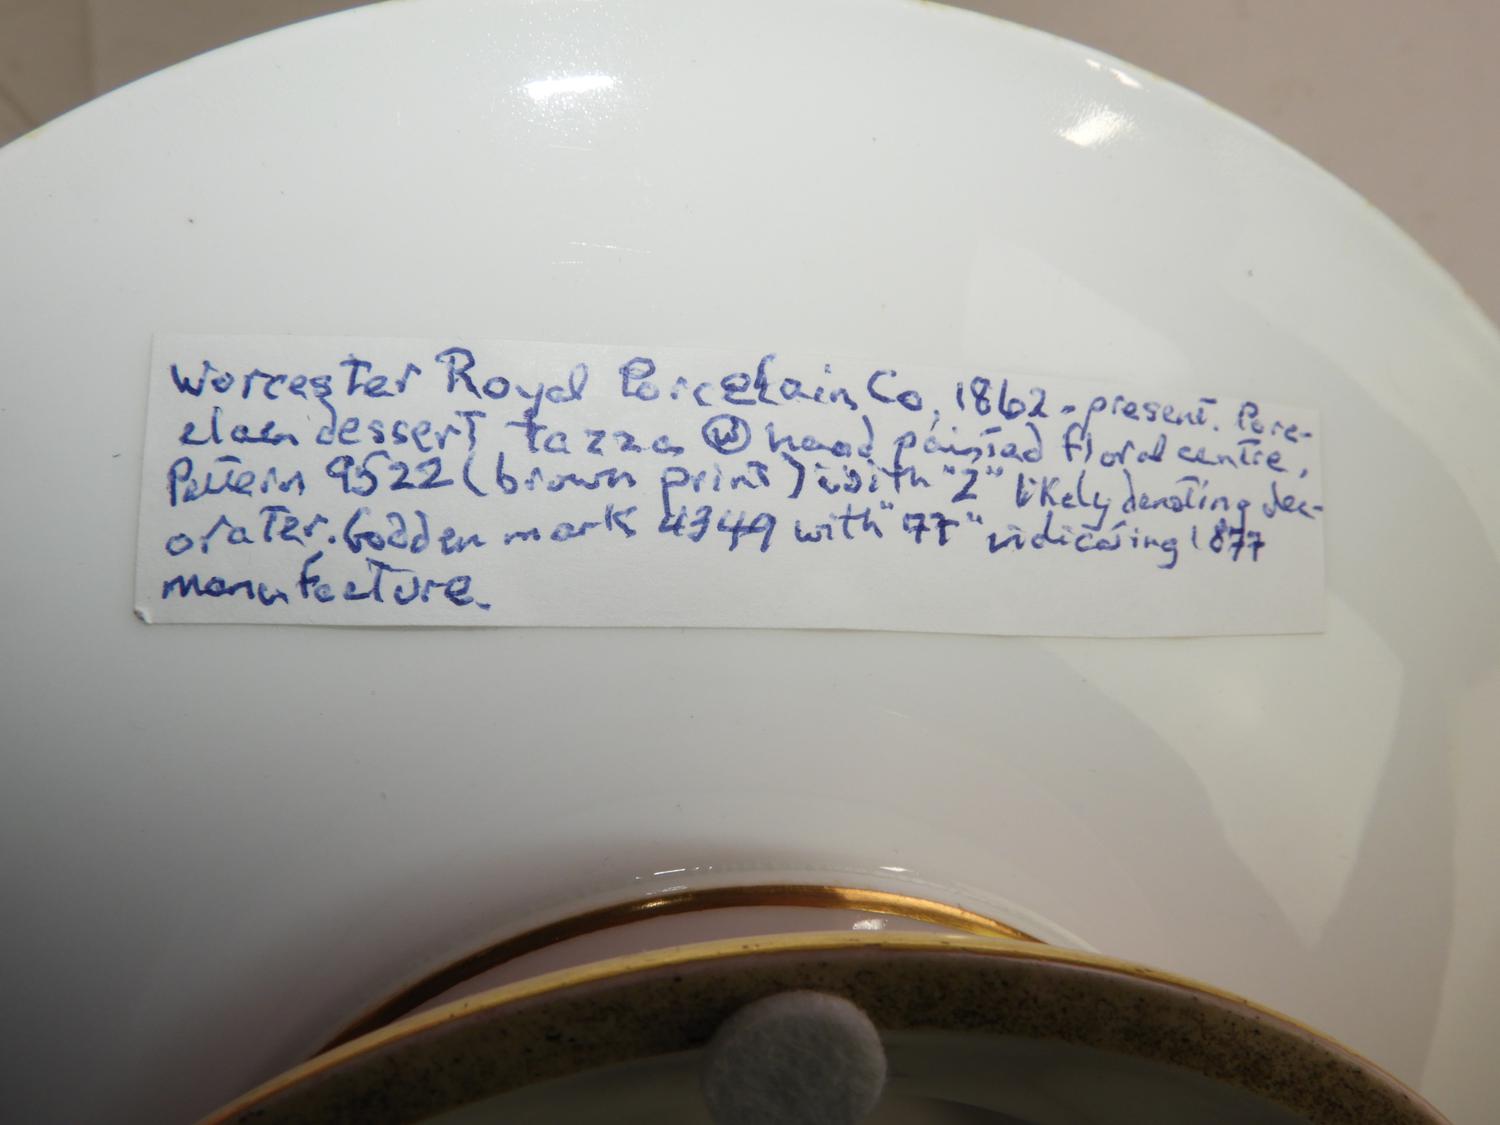 Worcester Royal Porcelain Co, 1862 - present. Porc-
elain dessert tazza ⓦ hand painted floral centre,
Pattern 9522 (brown print) with "Z" likely denoting dec-
orater. Godden mark 4349 with "77" indicating 1877
manufacture.